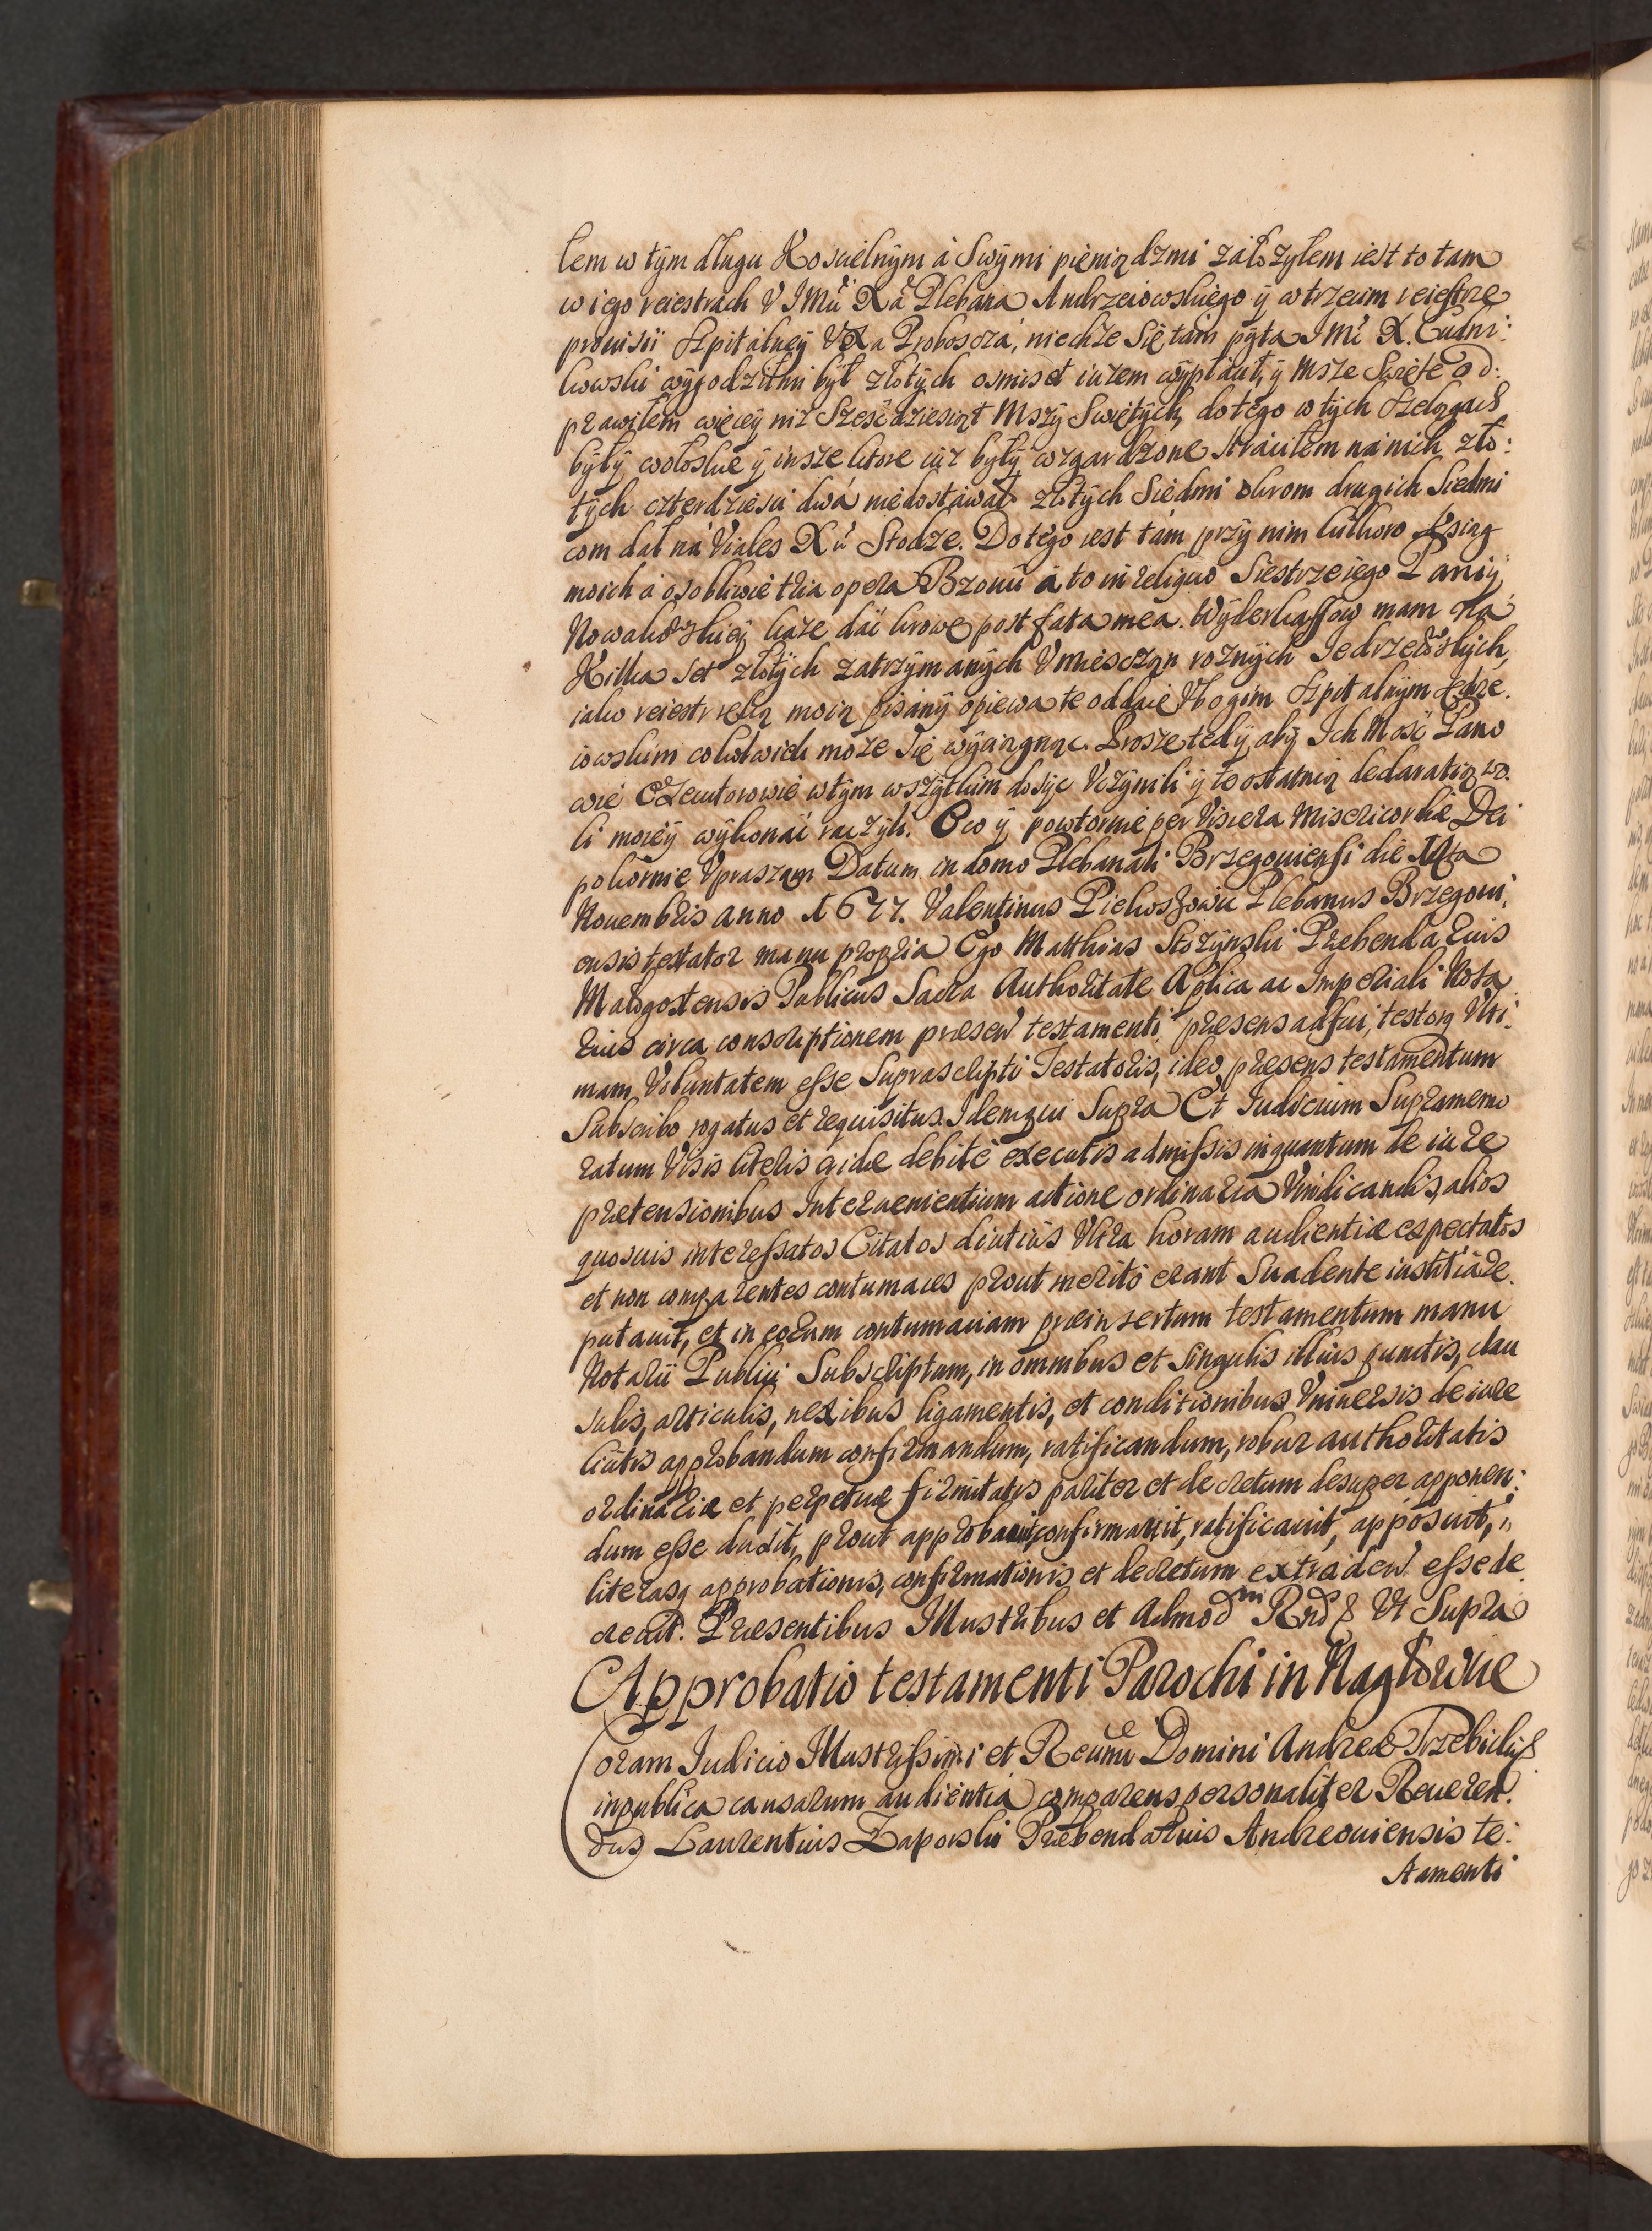 łem w tým długu Koscielným á Swými pięniądzmi záłozyłem iest to tam
w iego reiestrách V JMci Xa Plebana Andrzeiowskiego ý w trzecim reiestrze
prouisii Szpitalneý V Xa Proboscza, niechze Się tam pýta JMć X. Cudni:
kowski wýgodziłmi był złotých osmset iuzem wýpłacił, ý Msze Swięte od:
prawiłem więceý niz Szesćdziesiąt Mszý Swiętých, do tego w tých Szelągach
býłý wołoskie ý insze ktore iuz býłý wzgardzone stráciłem ná nich zło:
tých czterdziesci dwá niedostawáło złotých Siedmi okrom drugich Siedmi
com dał ná Viales Xu Stodze. Do tego iest tám przý nim kilkoro Xsiąg
moich á osobliwie tria opera Bzouii á to in reliquo Siestrze iego Pannÿ
Nowakowskieý kaze dáć krowe post fata mea. Wýderkaffow mam ná
Kilka set złotých zatrzýmaných V miesczan rozných Jedrzeiowskich,
iako reiestr ręką moią pisaný opiewa te oddaię Vbogim Szpitalným Jedrze.
iowskim cokolwiek może Się wýciągnąc. Prosze tedý, abý Ich Mosć Pano
wie Exekutorowie w tým wszýtkim dosýc Vczýnili ý te ostatnią declaratią wo.
li moieý wýkonáć raczýli. O co ý powtornie per Viscera Misericordiæ Dei
pokornie Vpraszam Datum in domo Plebanali Brzegouiensi die 10ta
Nouembris anno 1677. Valentinus Piekoszowic Plebanus Brzegoui:
ensis testator manu propria Ego Matthias Stozýnski Præbendarius
Małogostensis Publicus Sacra Authoritate Aplica ac Imperiali Nota
rius circa conscriptionem præsen testamenti præsens adfui, testorq Vlti:
mam Voluntatem esse Suprascripti Testatoris, ideo præsens testamentum
Subscribo rogatus et requisitus. Idemqui Supra Et Iudicium Supramemo
ratum Visis literis cridæ debite executis admissis inquantum de iure
prætensionibus Interuenientium actione ordinaria Vindicandis, alios
quosuis interessatos Citatos diutius Vltra horam audientiæ expectatos
et non comparentes contumaces prout merito erant Suadente iustitia re.
putauit, et in eorum contumaciam præinsertum testamentum manu
Notarii Publici Subscriptum, in omnibus et Singulis illius punctis, clau
sulis, articulis, nexibus ligamentis, et conditionibus Vniuersis de iure
licitis approbandum confirmandum, ratificandum, robur authoritatis
ordinariæ et perpetuæ firmitatis pariter et decretum desuper apponen:
dum esse duxit, prout approbauit, confirmauit, ratificauit, apposuit,
literasq approbationis, confirmationis et decretum extraden esse de
creuit. Præsentibus Illustribus et Admodm Rndis Vt Supra
Approbatio testamenti Parochi in Nagłowice
Coram Iudicio Illustrissimi et Reuñdi Domini Andreæ Trzebicki &
in publica causarum audientia comparens personaliter Reueren:
dus Laurentius Zaporski Præbendarius Andreouiensis te:
stamenti